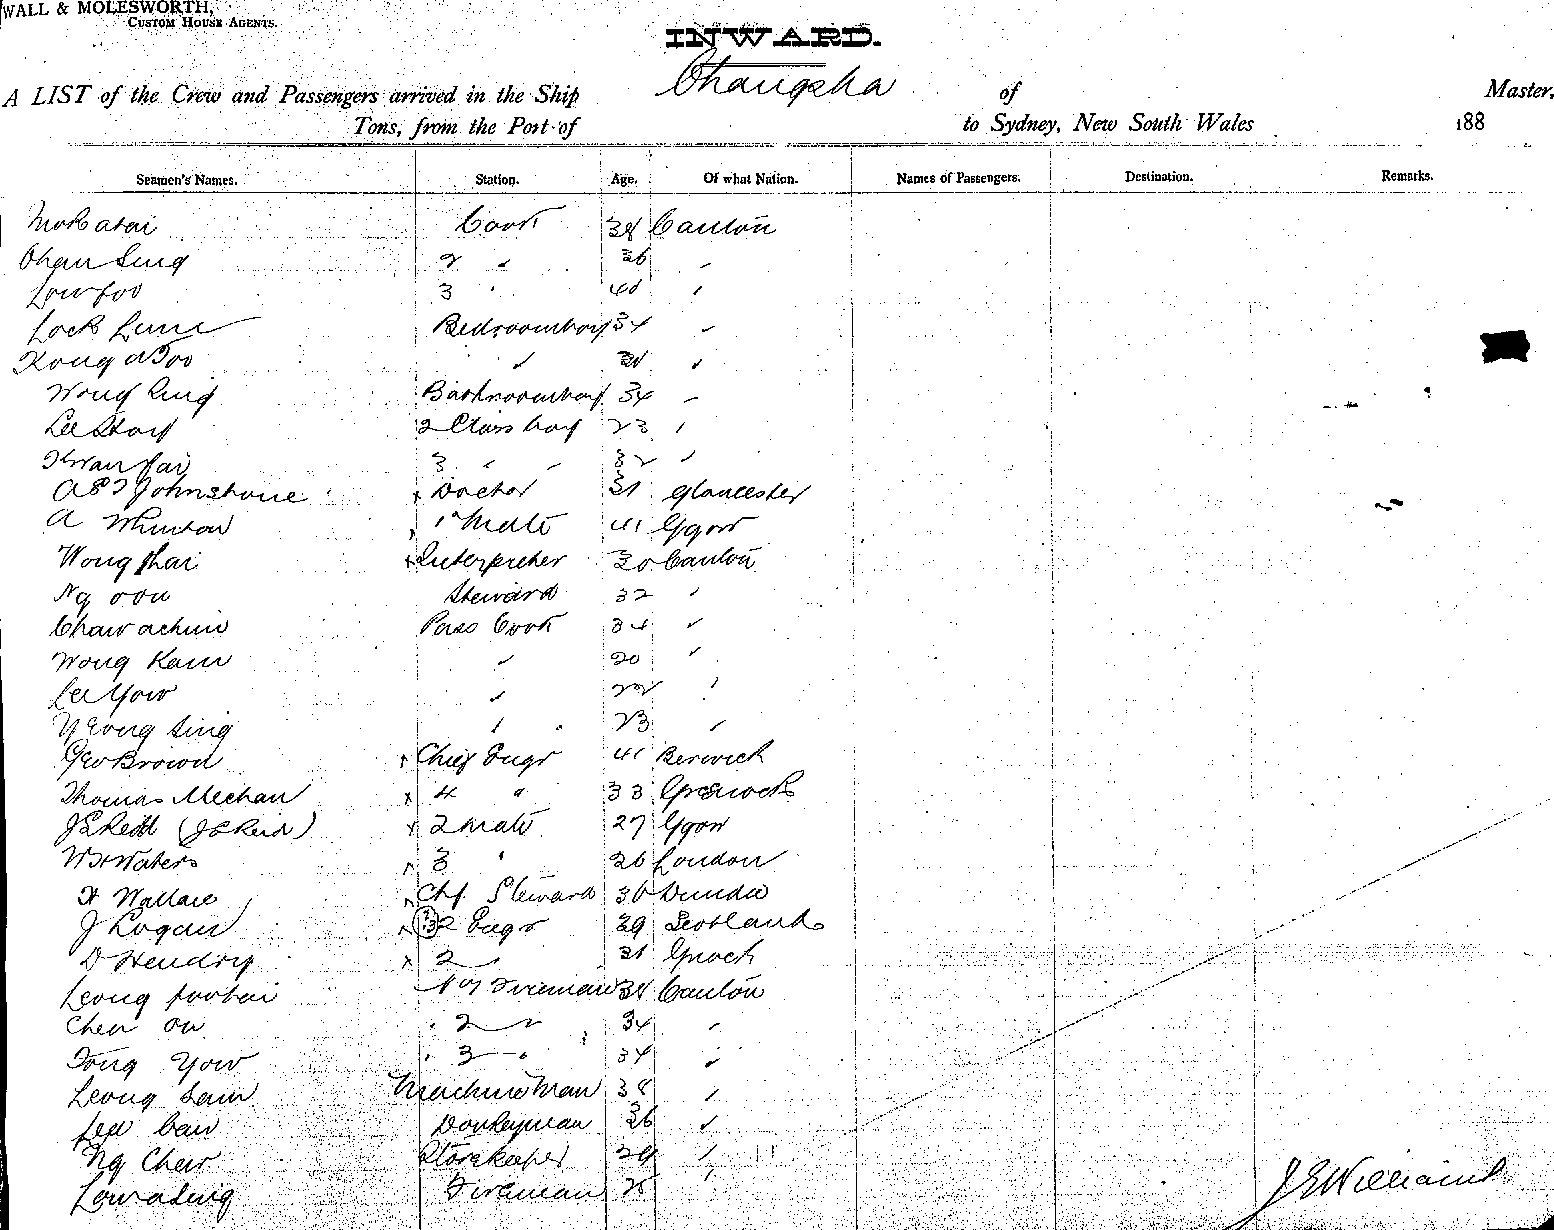 WALL & MOLESWORTH,
CUSTOM HOUSE AGENTS.
INWARD.
A LIST of the Crew and Passengers arrived in the Ship Changsha of Master,
Tons, from the Port of to Sydney, New South Wales 188
Seamen's Names. Station. Age. Of what Nation. Names of Passengers. Destination. Remarks.
Cook 38 Canton
Chan Sing 2 " 36 "
Low foo 3 " 40 "
Lock Bedroomboy 34 "
" "
Wong Bathroomboy 34 "
Lee 2 Class boy 23 "
Kwan 3 " " 32 "
Johnstone x Doctor 31 Gloucester
A 1st Mate 41 Ggow
Wong x Interpreter 30 Canton
Ng Steward 32 "
Chaw Pass Cook 34 "
Wong Kam " 20 "
Lee Yow " 22 "
Yeong Sing " 23 "
Geo Brown x Chief Engr 41 Berwick
Thomas Meehan x 4 " 33 Greenock
(J E Reid) x 2 Mate 27 Ggow
W H Waters x 3 " 26 London
H Wallace x Chf Steward 36 Dundee
J Logan x Engr 29 Scotland
D Hendry x 2 " 31 Gnock
Leong No 1 Fireman 38 Canton
Chew On " 2 " 34 "
Tong Yow " 3 " 34 "
Leong Sam Machine Man 38 "
Donkeyman 36 "
Ng Chew Storekeeper 29 "
Fireman "
J E Williams